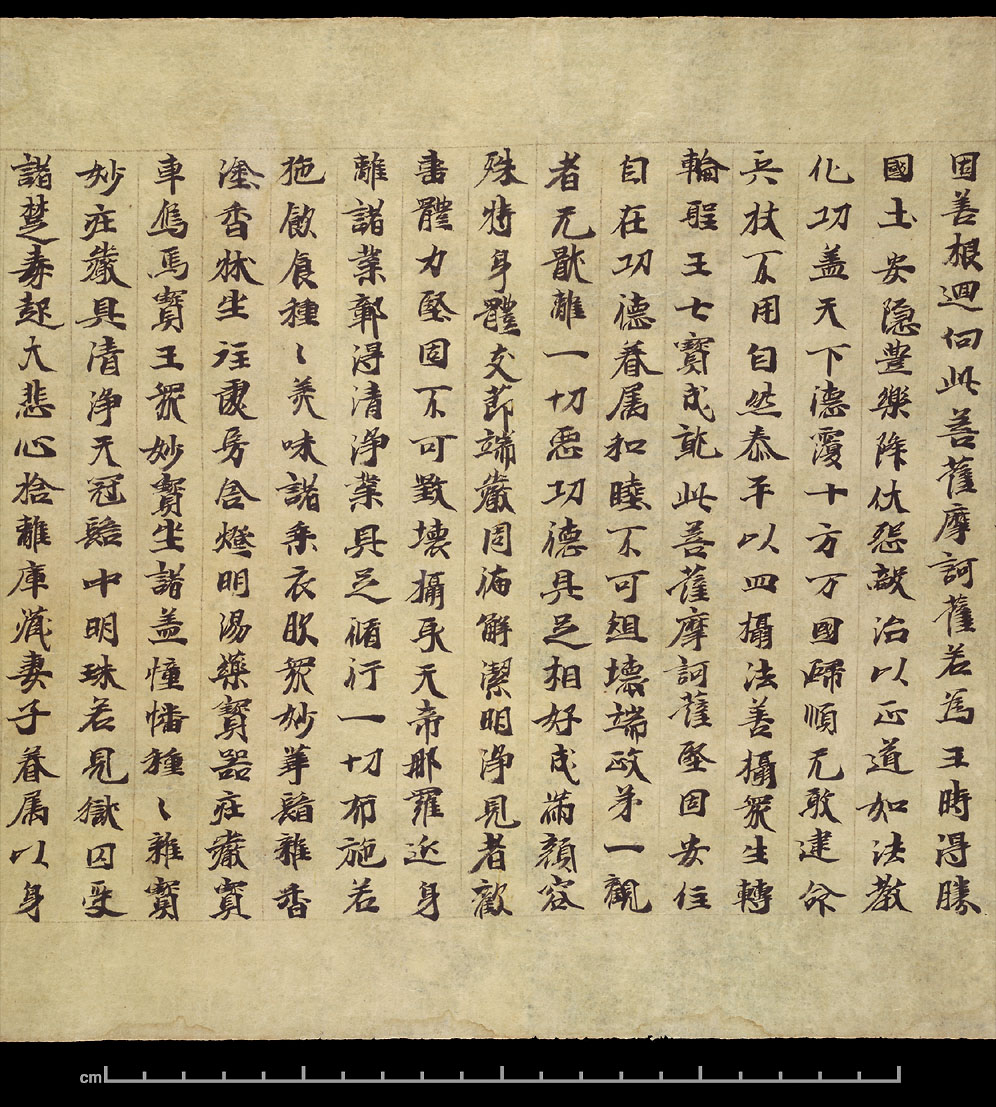 因善根迴向此菩薩摩訶薩若為王時得勝
國土安隱豊樂降伏怨敵治以正道如法教
化功盖天下德覆十方万國歸順无敢違命
兵杖不用自然泰平以四攝法善攝衆生轉
輪聖王七寶成就此菩薩摩訶薩堅固安住
自在功德眷属和睦不可俎壞端政第一觀
者无猒離一切惡功德具足相好成滿顔容
殊特身體支節端嚴周滿鮮潔明淨見者歡
喜體力堅固不可毀壞攝取天帝那羅延身
離諸業鄣得清淨業具足脩行一切布施若
施飲食種〻美味諸乘衣服衆妙華鬘雜香
塗香牀坐住處房舍燈明湯藥寶器莊嚴寶
車鳥馬寶王衆妙寶坐諸盖幢幡種〻雜寶
妙莊嚴具清淨天冠髻中明珠若見獄囚受
諸楚毒起大悲心捨離庫藏妻子眷属以身